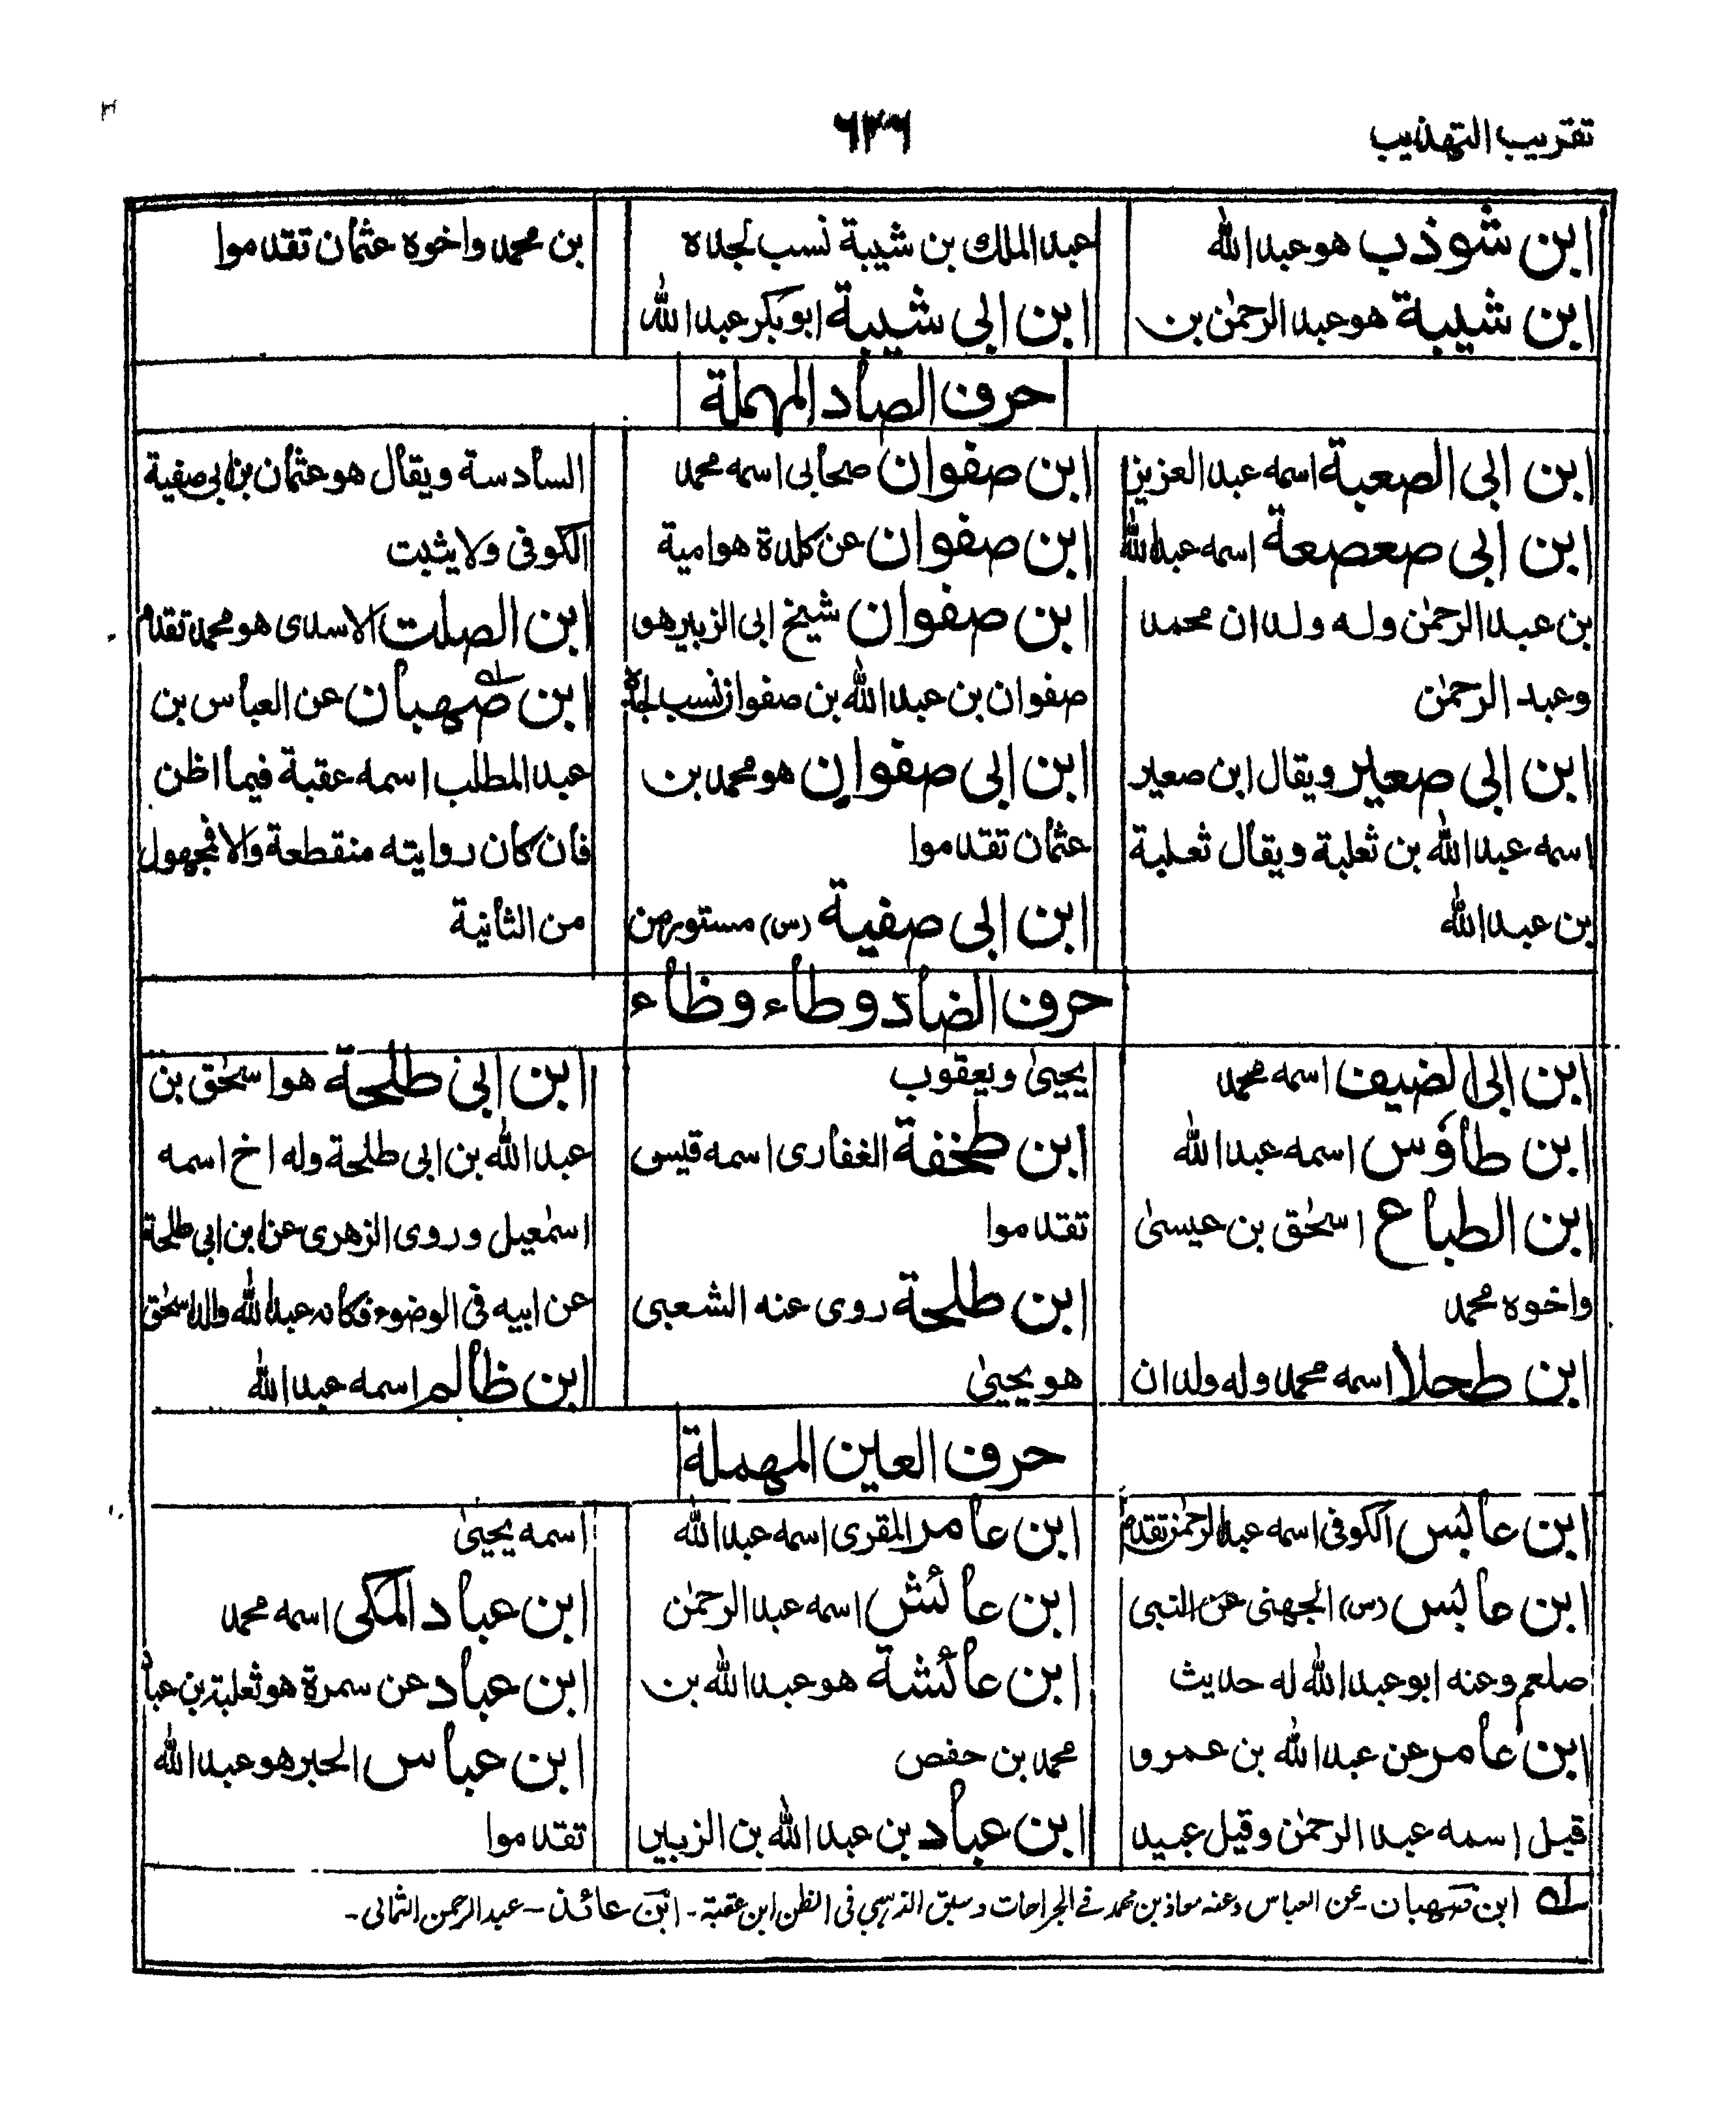 تقريب التهذيب
٦٣٦
ابن شوذب هو عبد الله
ابن شيبة هو عبد الرحمٰن بن
عبد الملك بن شيبة نسب لجده
ابن ابى شيبة ابو بكر عبد الله
بن محمد واخوه عثمان تقدموا
حرف الصاد المهملة
ابن ابى الصعبة اسمه عبد العزيز
ابن ابى صعصعة اسمه عبد الله
بن عبد الرحمٰن وله ولدان محمد
وعبد الرحمٰن
ابن ابى صعير ويقال ابن صعير
اسمه عبد الله بن ثعلبة ويقال ثعلبة
بن عبد الله
ابن صفوان صحابى اسمه محمد
ابن صفوان عن كلدة هو امية
ابن صفوان شيخ ابى الزبير هو
صفوان بن عبد الله بن صفوان نسب لجده
ابن ابى صفوان هو محمد بن
عثمان تقدموا
ابن ابى صفية (س) مستور من
السادسة ويقال هو عثمان بن ابى صفية
الكوفى ولا يثبت
ابن الصلت الاسدى هو محمد تقدم
ابن صهبان عن العباس بن
عبد المطلب اسمه عقبة فيما اظن
فان كان روايته منقطعة والا فمجهول
من الثانية
حرف الضاد وطاء وظاء
ابن ابى الضيف اسمه محمد
ابن طاؤس اسمه عبد الله
ابن الطباع اسحٰق بن عيسىٰ
واخوه محمد
ابن طحلا اسمه محمد وله ولدان
يحيىٰ ويعقوب
ابن طخفة الغفارى اسمه قيس
تقدموا
ابن طلحة روى عنه الشعبى
هو يحيىٰ
ابن ابى طلحة هو اسحٰق بن
عبد الله بن ابى طلحة وله اخ اسمه
اسمٰعيل وروى الزهرى عن ابن ابى طلحة
عن ابيه فى الوضوء فكانه عبد الله والد اسحٰق
ابن ظالم اسمه عبد الله
حرف العين المهملة
ابن عابس الكوفى اسمه عبد الرحمٰن تقدم
ابن عابس (س) الجهنى عن النبى
صلعم وعنه ابو عبد الله له حديث
ابن عامر عن عبد الله بن عمرو
قيل اسمه عبد الرحمٰن وقيل عبيد
ابن عامر المقرى اسمه عبد الله
ابن عائش اسمه عبد الرحمٰن
ابن عائشة هو عبد الله بن
محمد بن حفص
ابن عباد بن عبد الله بن الزبير
اسمه يحيىٰ
ابن عباد المكى اسمه محمد
ابن عباد عن سمرة هو ثعلبة بن عباد
ابن عباس الحبر هو عبد الله
تقدموا
ابن صهبان - عن العباس وعنه معاذ بن محمد فى الجراحات وسبق الذہبي فى الظن ابن عقبة - ابن عائذ - عبد الرحمن الثمالى -